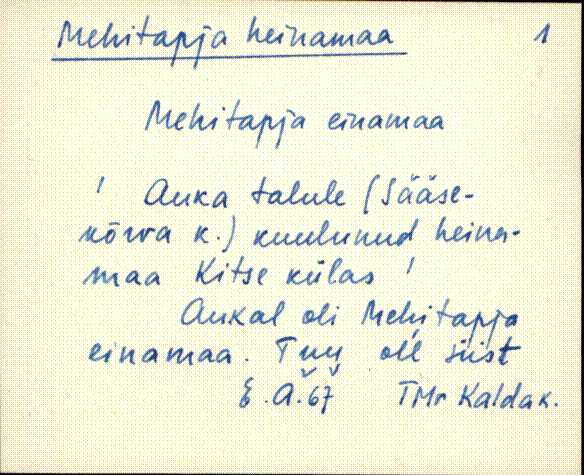 Mehitapja heinamaa 1
Mehitapja einamaa
' Auka talule (Sääse-
kõrva k.) kuulunud heina-
maa Kitse külas '
Aukal oli Mehitapja
einamaa. Tuu oll siist
67 TMr Kaldak.